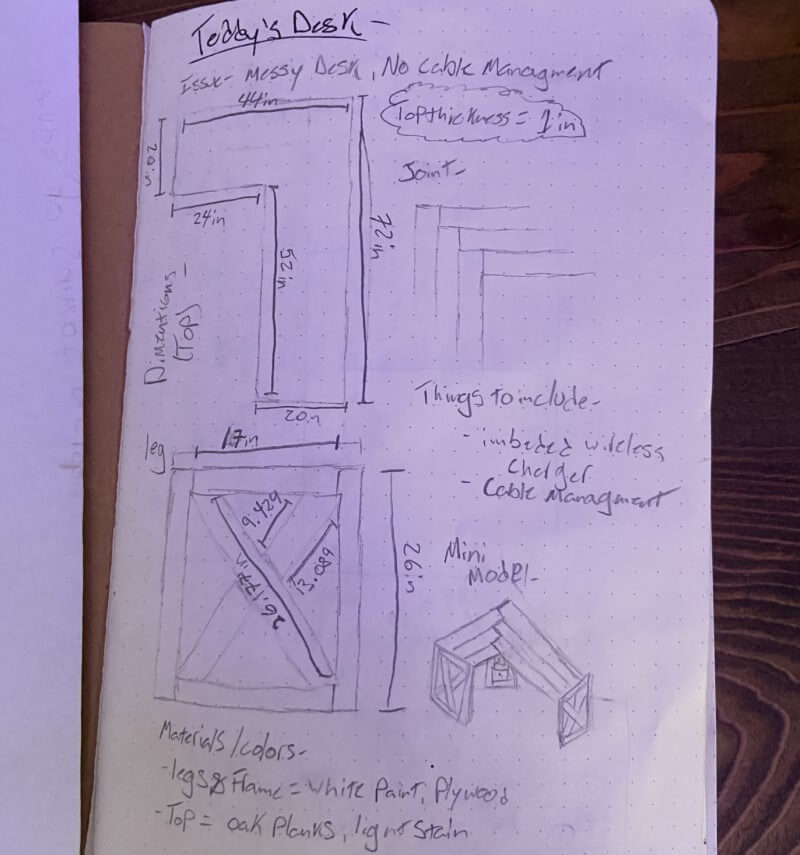 Teddy's Desk -
Issue - Messy Desk, No Cable Managment
44in
Top thickness = 1 in
20in
Joint -
24in
72in
52in
Dimentions
(Top) -
20in
Things to include -
- imbeded wireless
charger
- Cable Managment
leg
17in
9.429
13.089
26.177in
26in
Mini
Model -
Materials/colors -
- legs & Frame = white Paint, Plywood
- Top = oak Planks, light stain